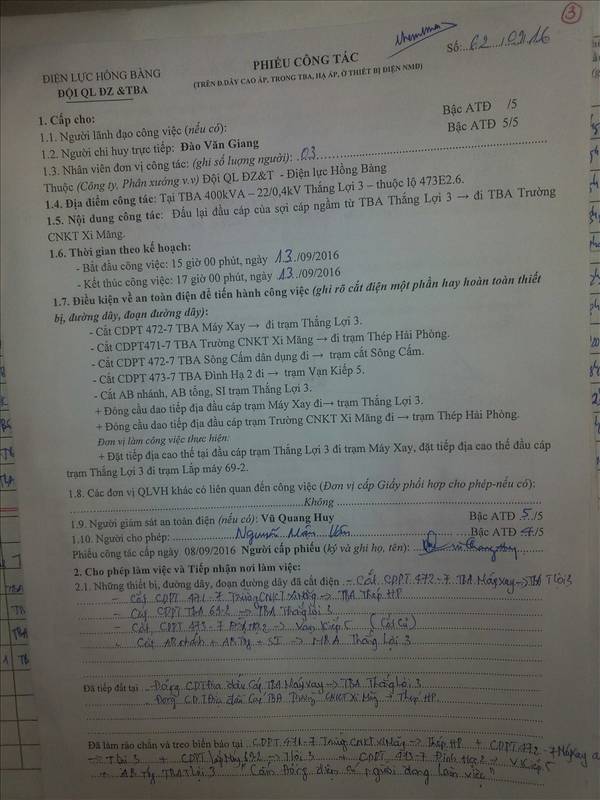 3
Số: 62/09/16
ĐIỆN LỰC HỒNG BÀNG
ĐỘI QL ĐZ &TBA
PHIẾU CÔNG TÁC
(TRÊN Đ.DÂY CAO ÁP, TRONG TBA, HẠ ÁP, Ở THIẾT BỊ ĐIỆN NMĐ)
1. Cấp cho:
1.1. Người lãnh đạo công việc (nếu có): Bậc ATĐ /5
1.2. Người chỉ huy trực tiếp: Đào Văn Giang Bậc ATĐ 5/5
1.3. Nhân viên đơn vị công tác: (ghi số lượng người): 03
Thuộc (Công ty, Phân xưởng v.v) Đội QL ĐZ&T - Điện lực Hồng Bàng
1.4. Địa điểm công tác: Tại TBA 400kVA – 22/0,4kV Thắng Lợi 3 – thuộc lộ 473E2.6.
1.5. Nội dung công tác: Đấu lại đầu cáp của sợi cáp ngầm từ TBA Thắng Lợi 3 → đi TBA Trường
CNKT Xi Măng.
1.6. Thời gian theo kế hoạch:
- Bắt đầu công việc: 15 giờ 00 phút, ngày 13/09/2016
- Kết thúc công việc: 17 giờ 00 phút, ngày 13/09/2016
1.7. Điều kiện về an toàn điện để tiến hành công việc (ghi rõ cắt điện một phần hay hoàn toàn thiết
bị, đường dây, đoạn đường dây):
- Cắt CDPT 472-7 TBA Máy Xay → đi trạm Thắng Lợi 3.
- Cắt CDPT471-7 TBA Trường CNKT Xi Măng → đi trạm Thép Hải Phòng.
- Cắt CDPT 472-7 TBA Sông Cấm dân dụng đi → trạm cắt Sông Cấm.
- Cắt CDPT 473-7 TBA Đình Hạ 2 đi → trạm Vạn Kiếp 5.
- Cắt AB nhánh, AB tổng, SI trạm Thắng Lợi 3.
+ Đóng cầu dao tiếp địa đầu cáp trạm Máy Xay đi→ trạm Thắng Lợi 3.
+ Đóng cầu dao tiếp địa đầu cáp trạm Trường CNKT Xi Măng đi → trạm Thép Hải Phòng.
Đơn vị làm công việc thực hiện:
+ Đặt tiếp địa cao thế tại đầu cáp trạm Thắng Lợi 3 đi trạm Máy Xay, đặt tiếp địa cao thế đầu cáp
trạm Thắng Lợi 3 đi trạm Lắp máy 69-2.
1.8. Các đơn vị QLVH khác có liên quan đến công việc (Đơn vị cấp Giấy phối hợp cho phép-nếu có):
Không
1.9. Người giám sát an toàn điện (nếu có): Vũ Quang Huy Bậc ATĐ 5/5
1.10. Người cho phép: Nguyễn Văn Bậc ATĐ 4/5
Phiếu công tác cấp ngày 08/09/2016 Người cấp phiếu (ký và ghi họ, tên):
2. Cho phép làm việc và Tiếp nhận nơi làm việc:
2.1. Những thiết bị, đường dây, đoạn đường dây đã cắt điện - Cắt CDPT 472-7 TBA Máy xay → TBA T lợi 3
- Cắt CDPT 471-7 Trường CNKT Xi Măng → TBA Thép HP
- Cắt CDPT TBA 69-2 → TBA Thắng Lợi 3
- Cắt CDPT 473-7 Đình Hạ 2 → Vạn Kiếp 5
- Cắt AB nhánh + AB Tg + SI → MBA Thắng Lợi 3
Đã tiếp đất tại - Đóng CDTĐịa đầu Cáp TBA Máy xay → TBA Thắng Lợi 3
- Đóng CDTĐịa đầu Cáp TBA Trường CNKT Xi Măng → Thép HP.
Đã làm rào chắn và treo biển báo tại CDPT 471-7 Trường CNKT Xi Măng → Thép HP + CDPT 472-7 Máy Xay
→ T lợi 3 + CDPT Lắp Máy 69-2 → T lợi 3 + CDPT 473-7 Đình Hạ 2 → V Kiếp 5
+ AB Tg TBA T Lợi 3 "Cấm Đóng điện có người đang làm việc"